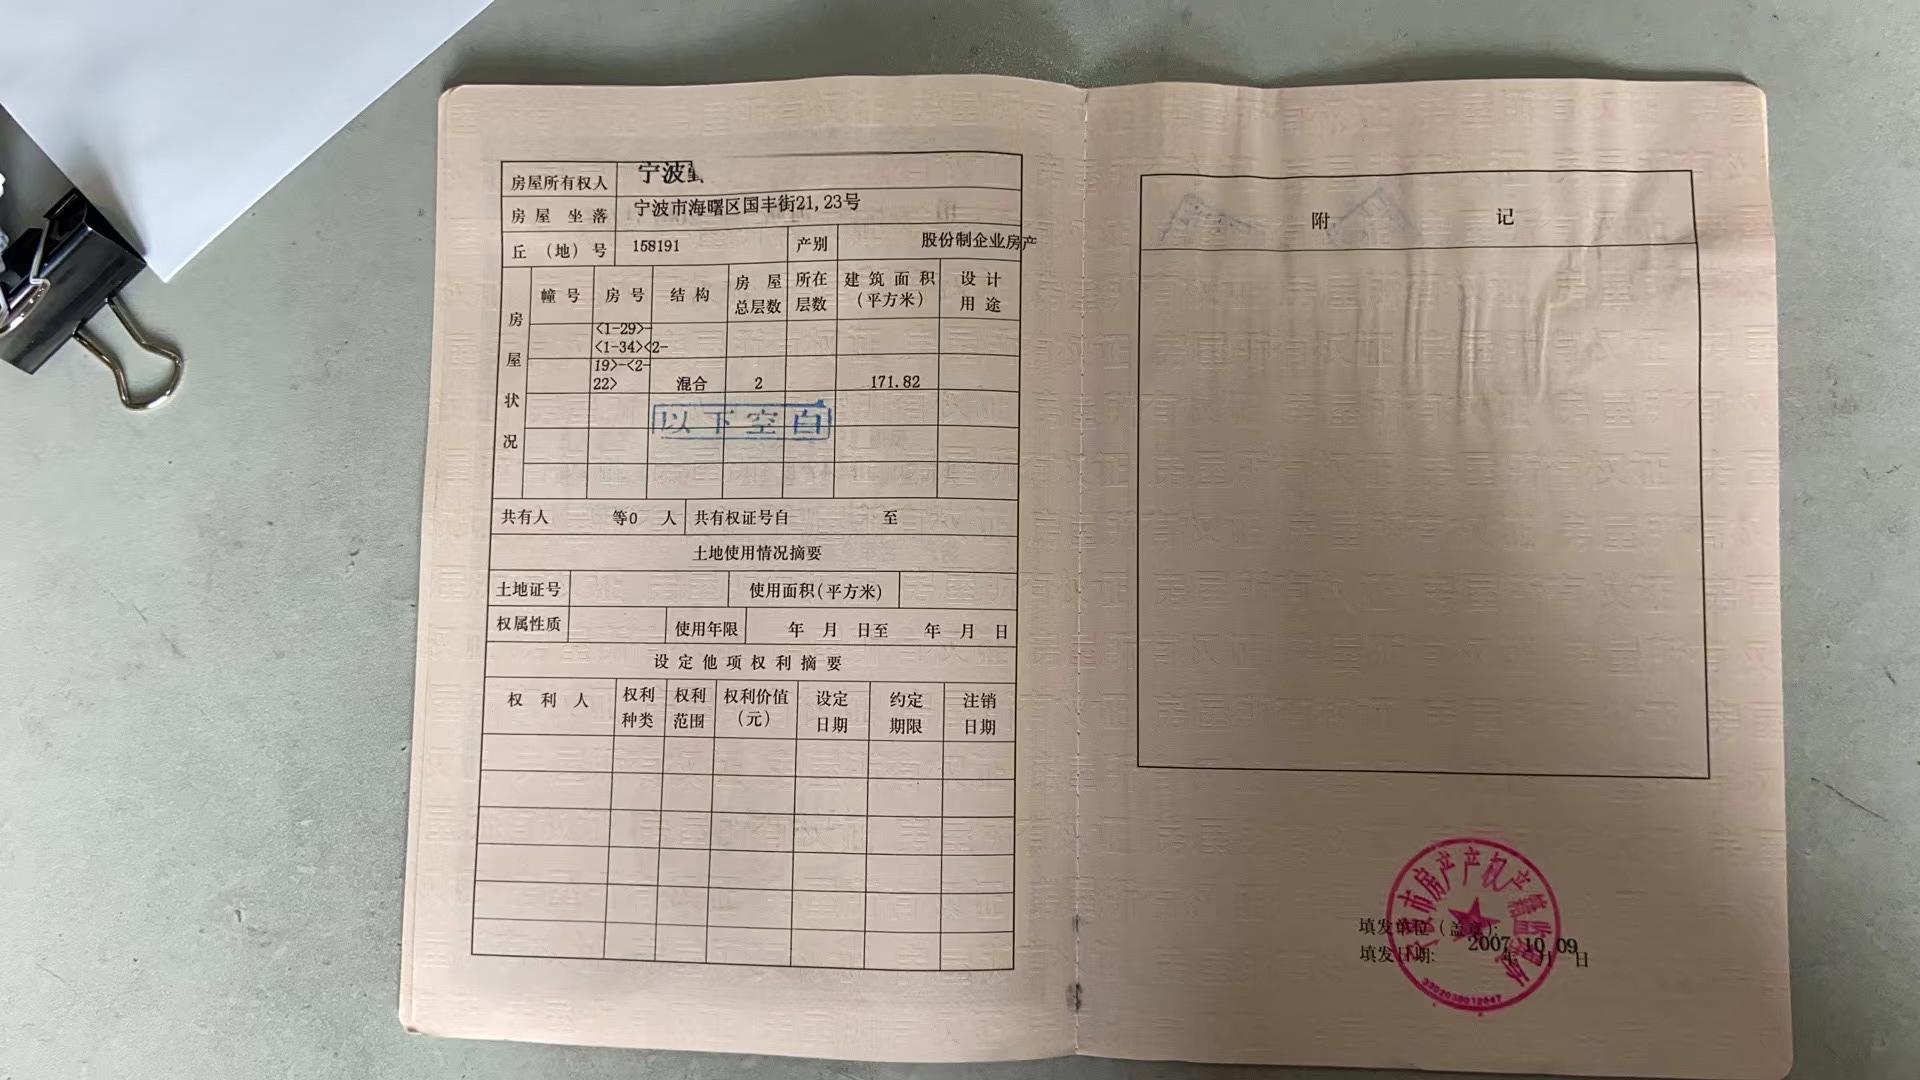 房屋所有权人 宁波
房屋坐落 宁波市海曙区国丰街21,23号
丘（地）号 158191 产别 股份制企业房产
房屋状况
幢号 房号 结构 房屋总层数 所在层数 建筑面积（平方米） 设计用途
<1-29>-
<1-34><2-
19>-<2-
22> 混合 2 171.82
以下空白
共有人 等0 人 共有权证号自 至
土地使用情况摘要
土地证号 使用面积(平方米)
权属性质 使用年限 年 月 日至 年 月 日
设定他项权利摘要
权利人 权利种类 权利范围 权利价值（元） 设定日期 约定期限 注销日期
附 记
市房产产权产籍监
填发单位（盖章）:
填发日期: 2007 年 10 月 09 日